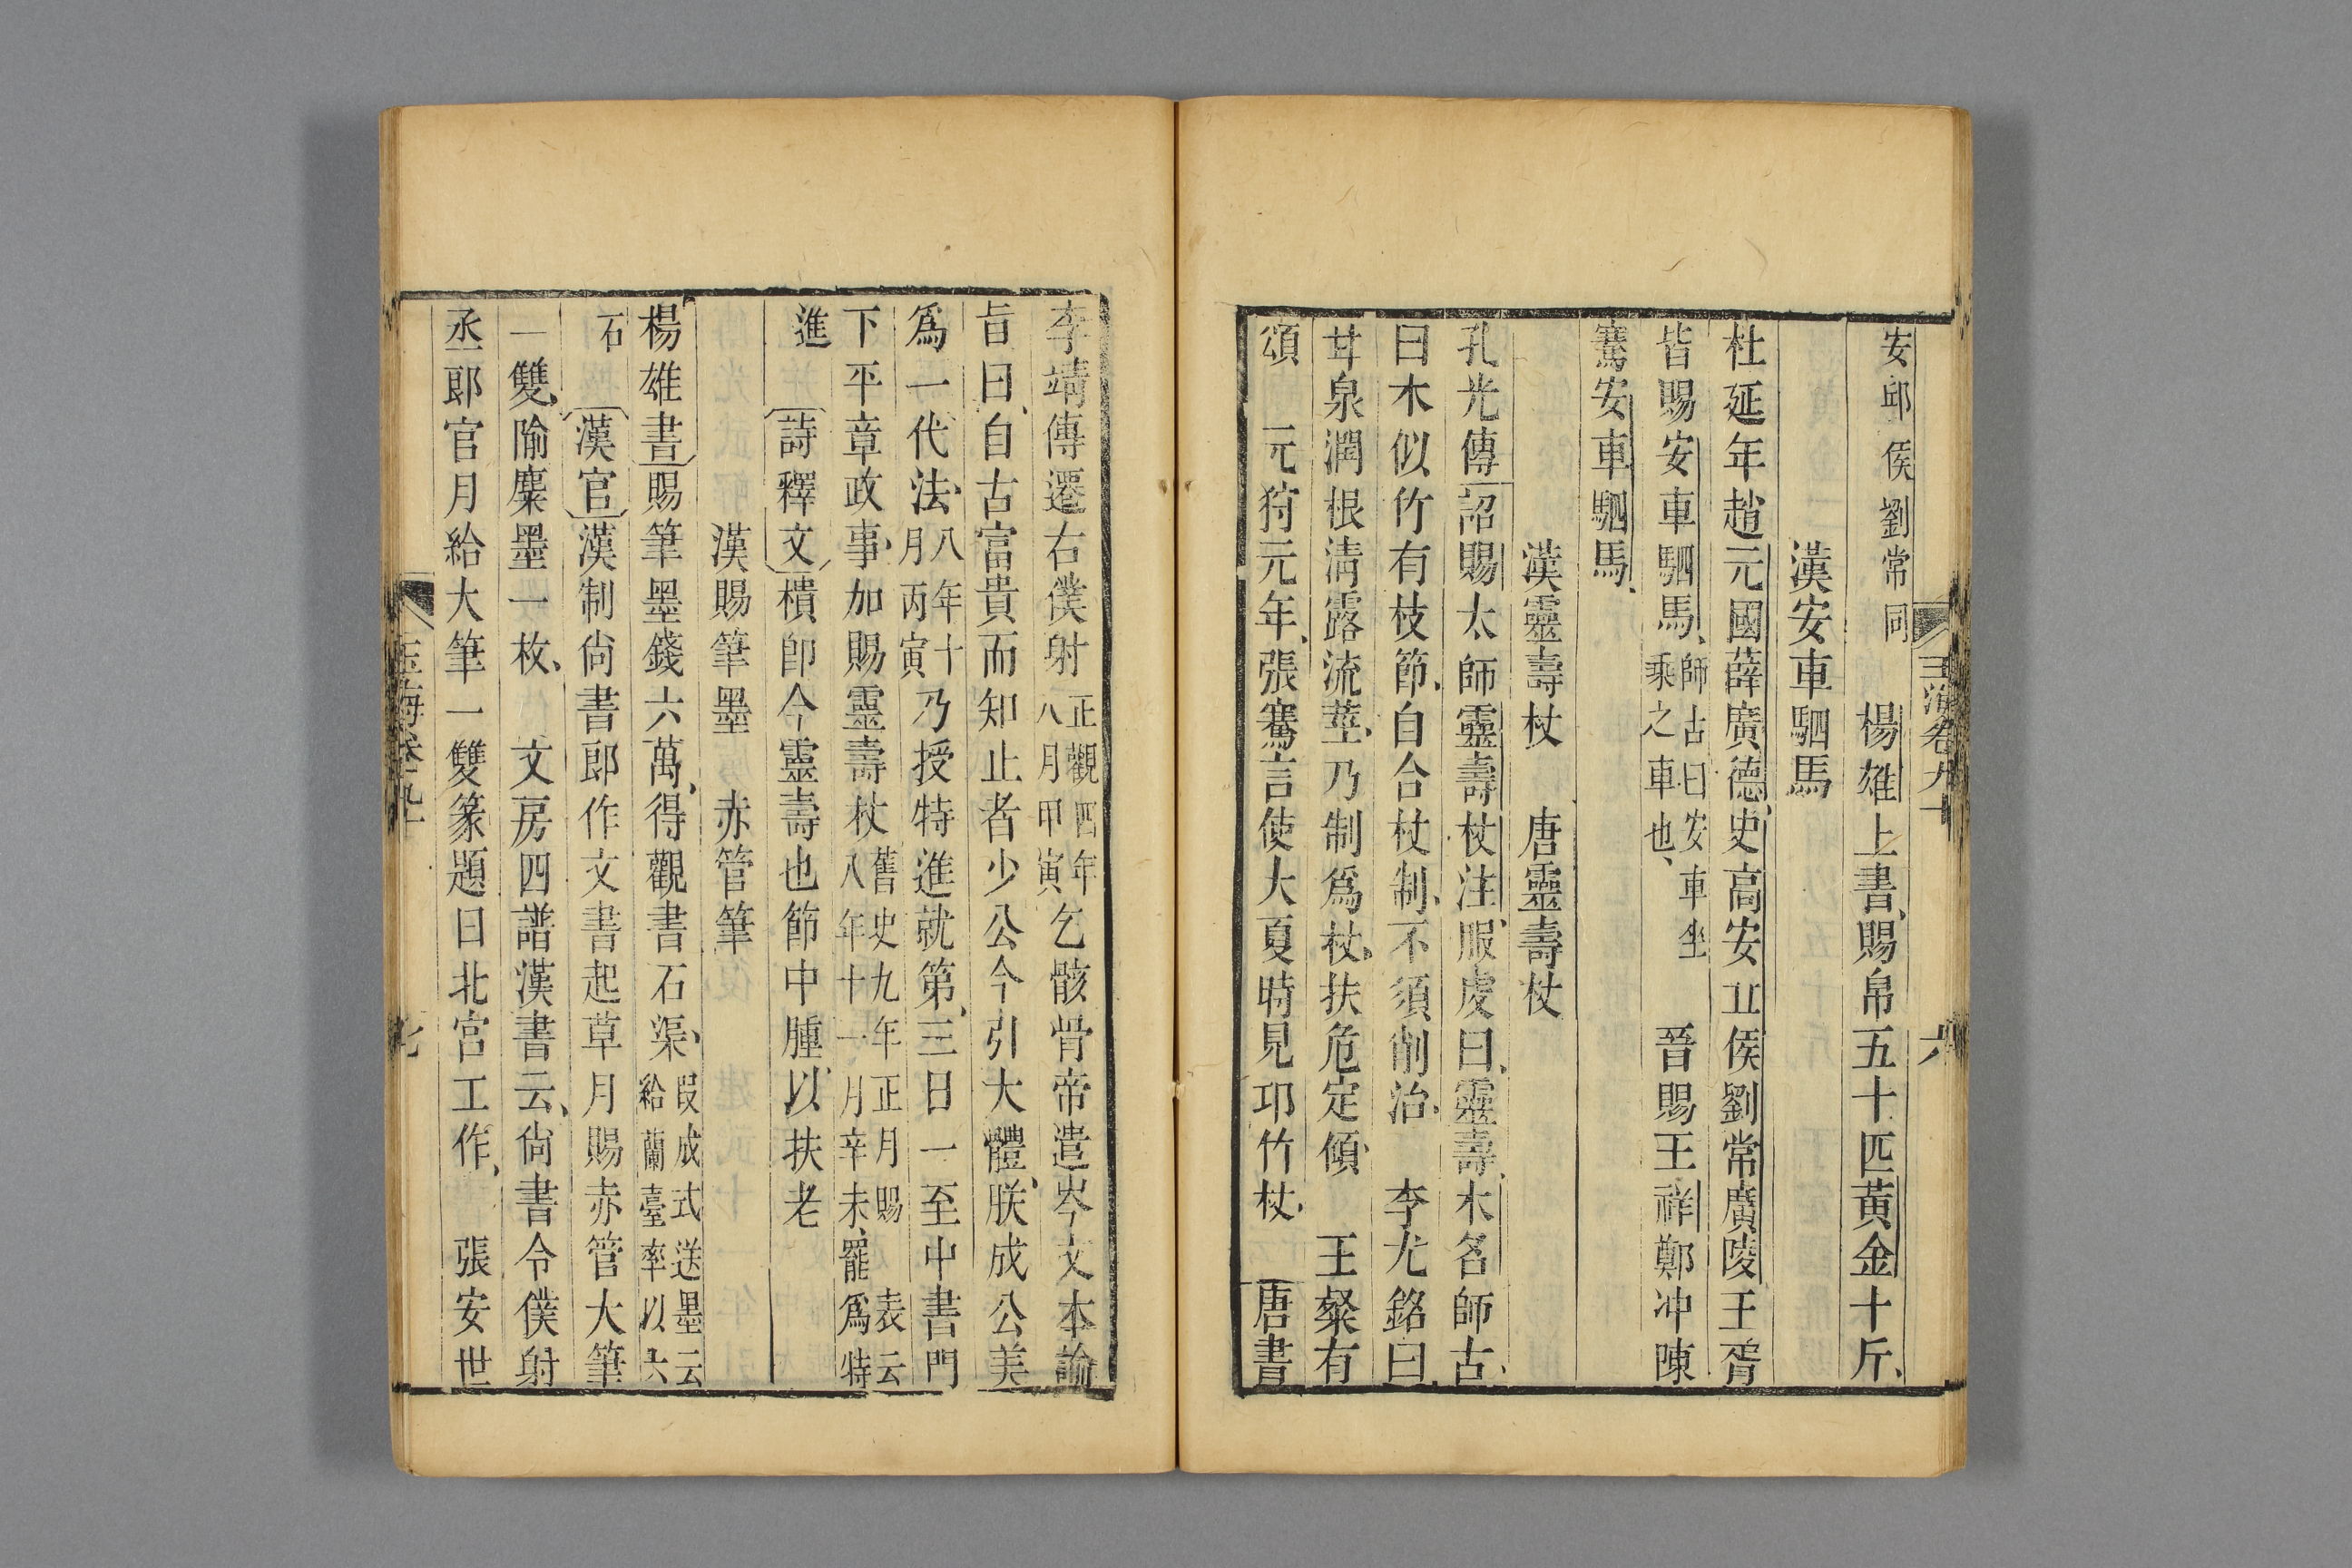 玉海卷九十 六
安邱侯劉常同 楊雄上書賜帛五十匹黃金十斤
漢安車駟馬
杜延年趙元國薛廣德史高安丘侯劉常廣陵王胥
皆賜安車駟馬師古曰安車坐乘之車也 晉賜王祥鄭冲陳
騫安車駟馬
漢靈壽杖 唐靈壽杖
孔光傳詔賜太師靈壽杖注服虔曰靈壽木名師古
曰木似竹有枝節自合杖制不須削治 李尤銘曰
甘泉潤根淸露流莖乃制爲杖扶危定傾 王粲有
頌 元狩元年張騫言使大夏時見邛竹杖 唐書
李靖傳遷右僕射正觀四年八月甲寅乞骸骨帝遣岑文本諭
旨曰自古富貴而知止者少公今引大體朕成公美
爲一代法八年十月丙寅乃授特進就第三日一至中書門
下平章政事加賜靈壽杖舊史九年正月賜 表云八年十一月辛未罷爲特
進 詩釋文樻卽今靈壽也節中腫以扶老
漢賜筆墨 赤管筆
楊雄書賜筆墨錢六萬得觀書石渠段成式送墨云給蘭臺率以六
石 漢官漢制尙書郞作文書起草月賜赤管大筆
一雙隃麋墨一枚 文房四譜漢書云尙書令僕射
丞郞官月給大筆一雙篆題曰北宮工作 張安世
玉海卷九十 七